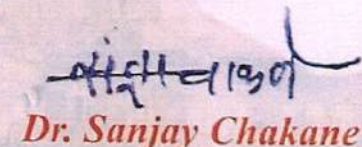 Dr. Sanjay Chakane